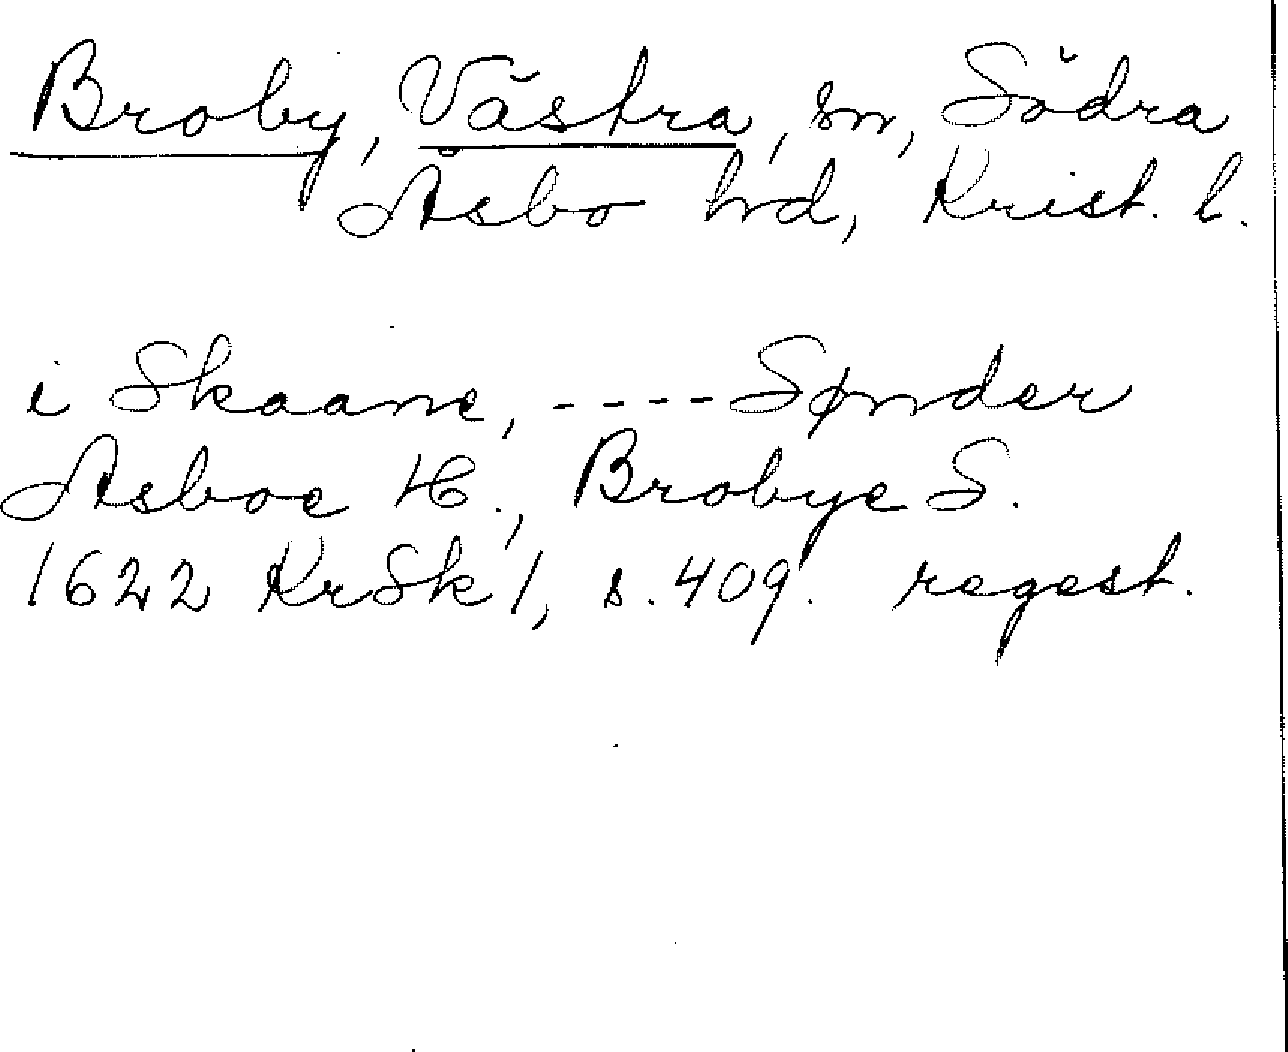 Broby, Västra, sn, Södra
Åsbo hd, Krist. l.
i Skaane, ---- Sønder
Asboe H., Brobye S.
1622 KrSk 1, s. 409. regest.